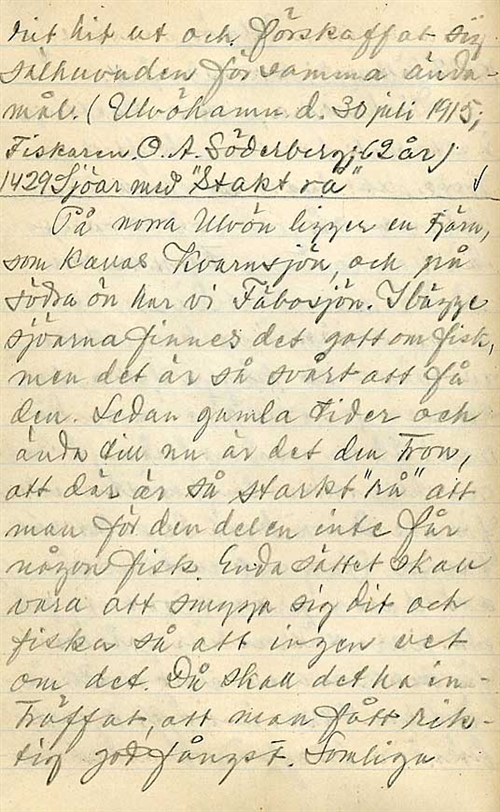 rit hit ut och förskaffat sig
sälhuvuden för samma ända-
mål. (Ulvöhamn d. 30 juli 1915;
Fiskaren O. A. Söderberg; 62 år).
1429 Sjöar med "Stakt rå"
På norra Ulvön ligger en tjärn,
som kallas Kvarnsjön, och på
södra ön har vi Fäbosjön. I bägge
sjöarna finnes det gott om fisk,
men det är så svårt att få
den. Sedan gamla tider och
ända till nu är det den tron,
att där är så starkt "rå" att
man för den delen inte får
någon fisk. Enda sättet skall
vara att smyga sig dit och
fiska så att ingen vet
om det. Då skall det ha in-
träffat, att man fått rik-
tig god fångst. Somliga